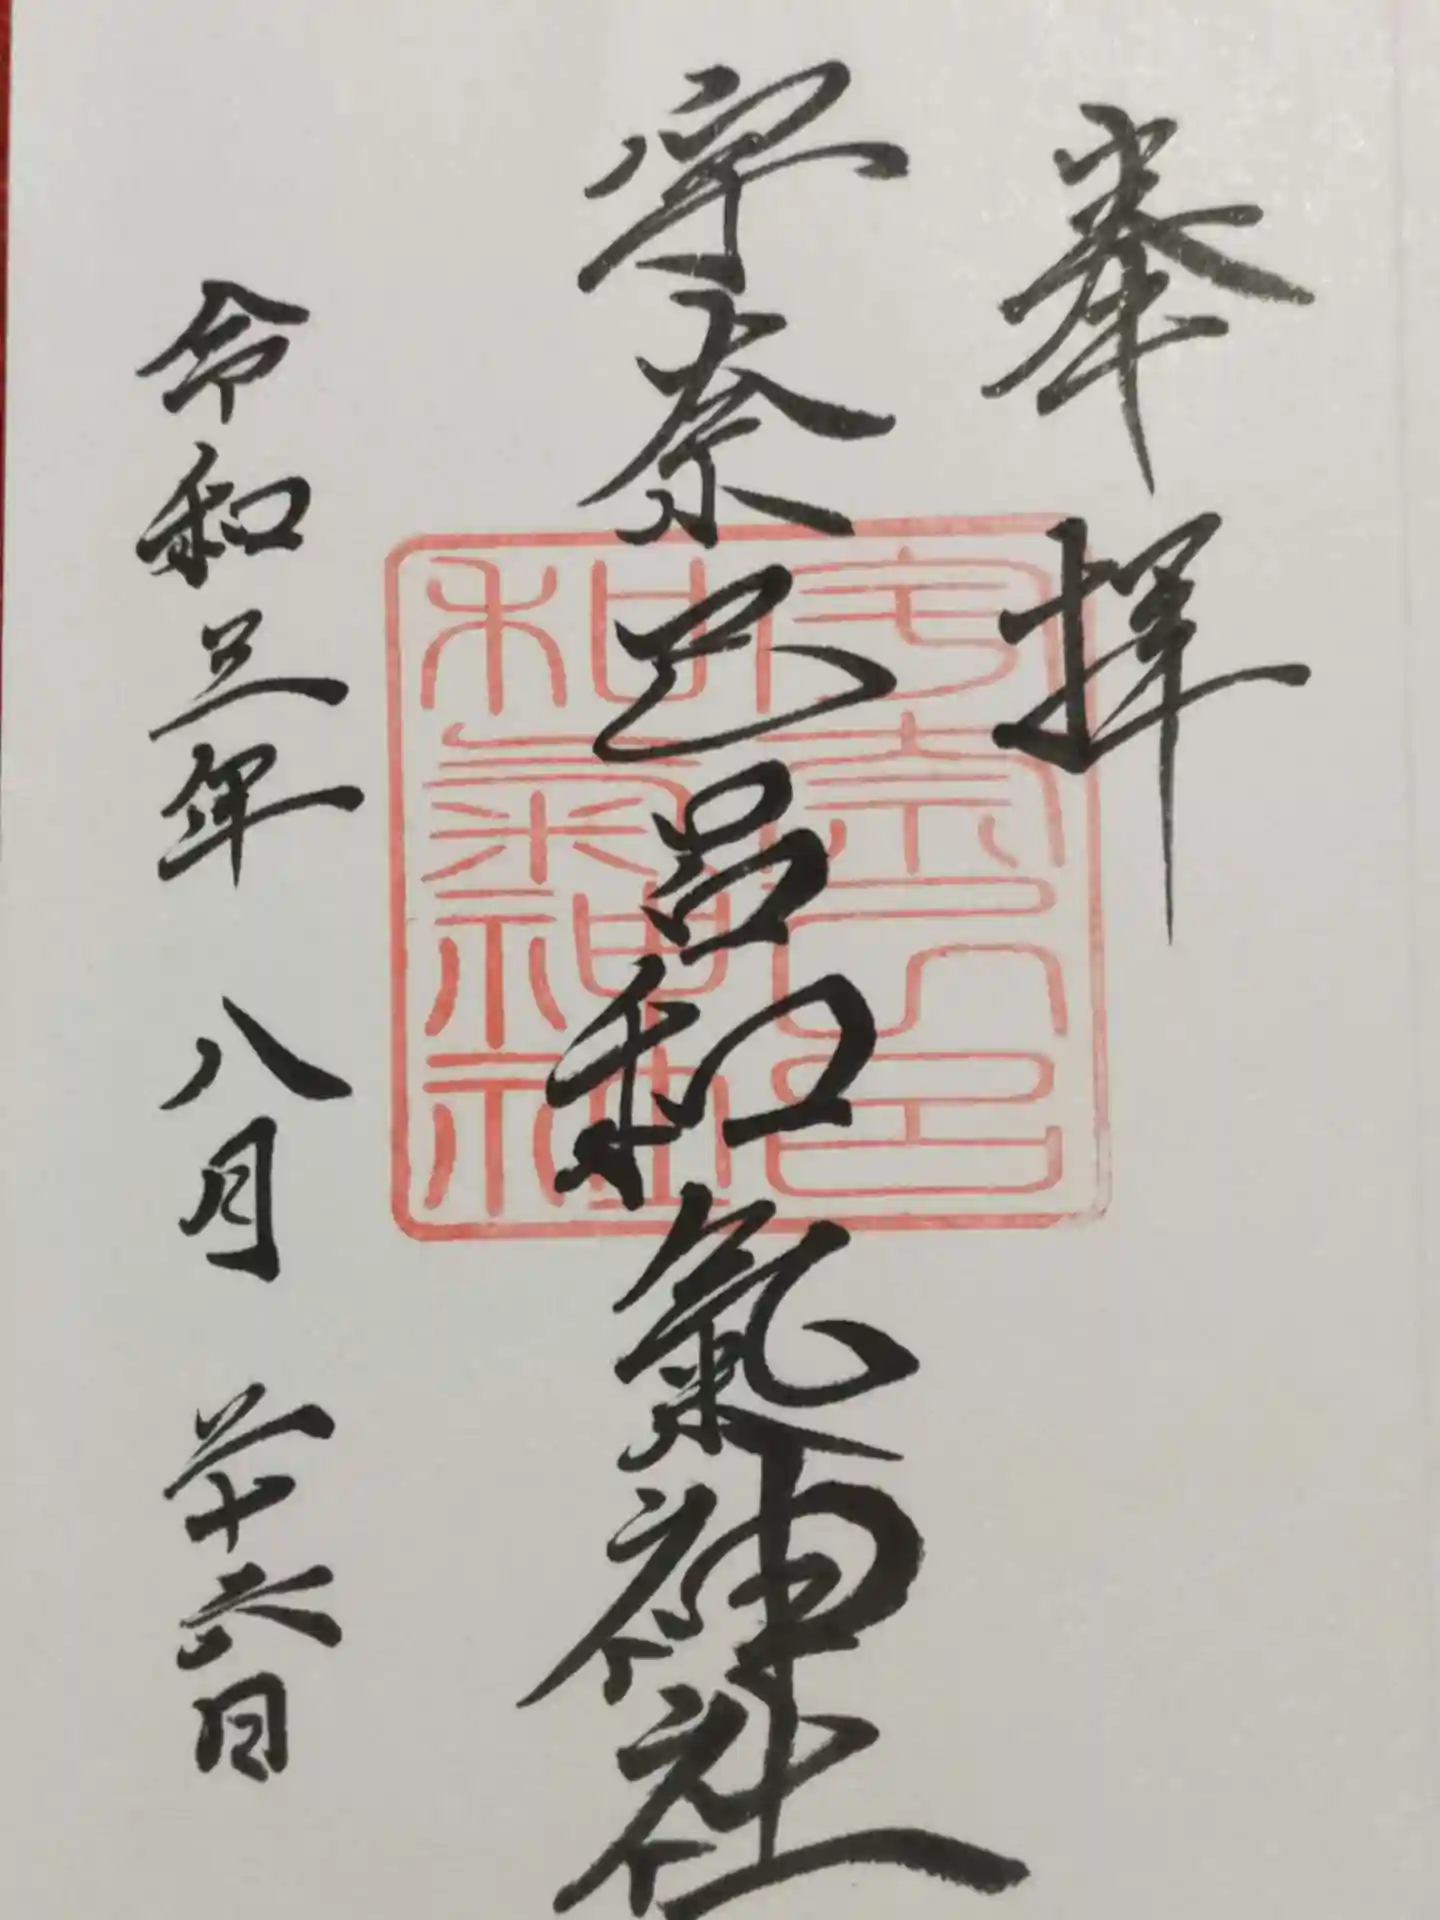 奉拝
宇奈己呂和氣神社
宇奈己呂
和氣神社
令和三年 八月 二十六日